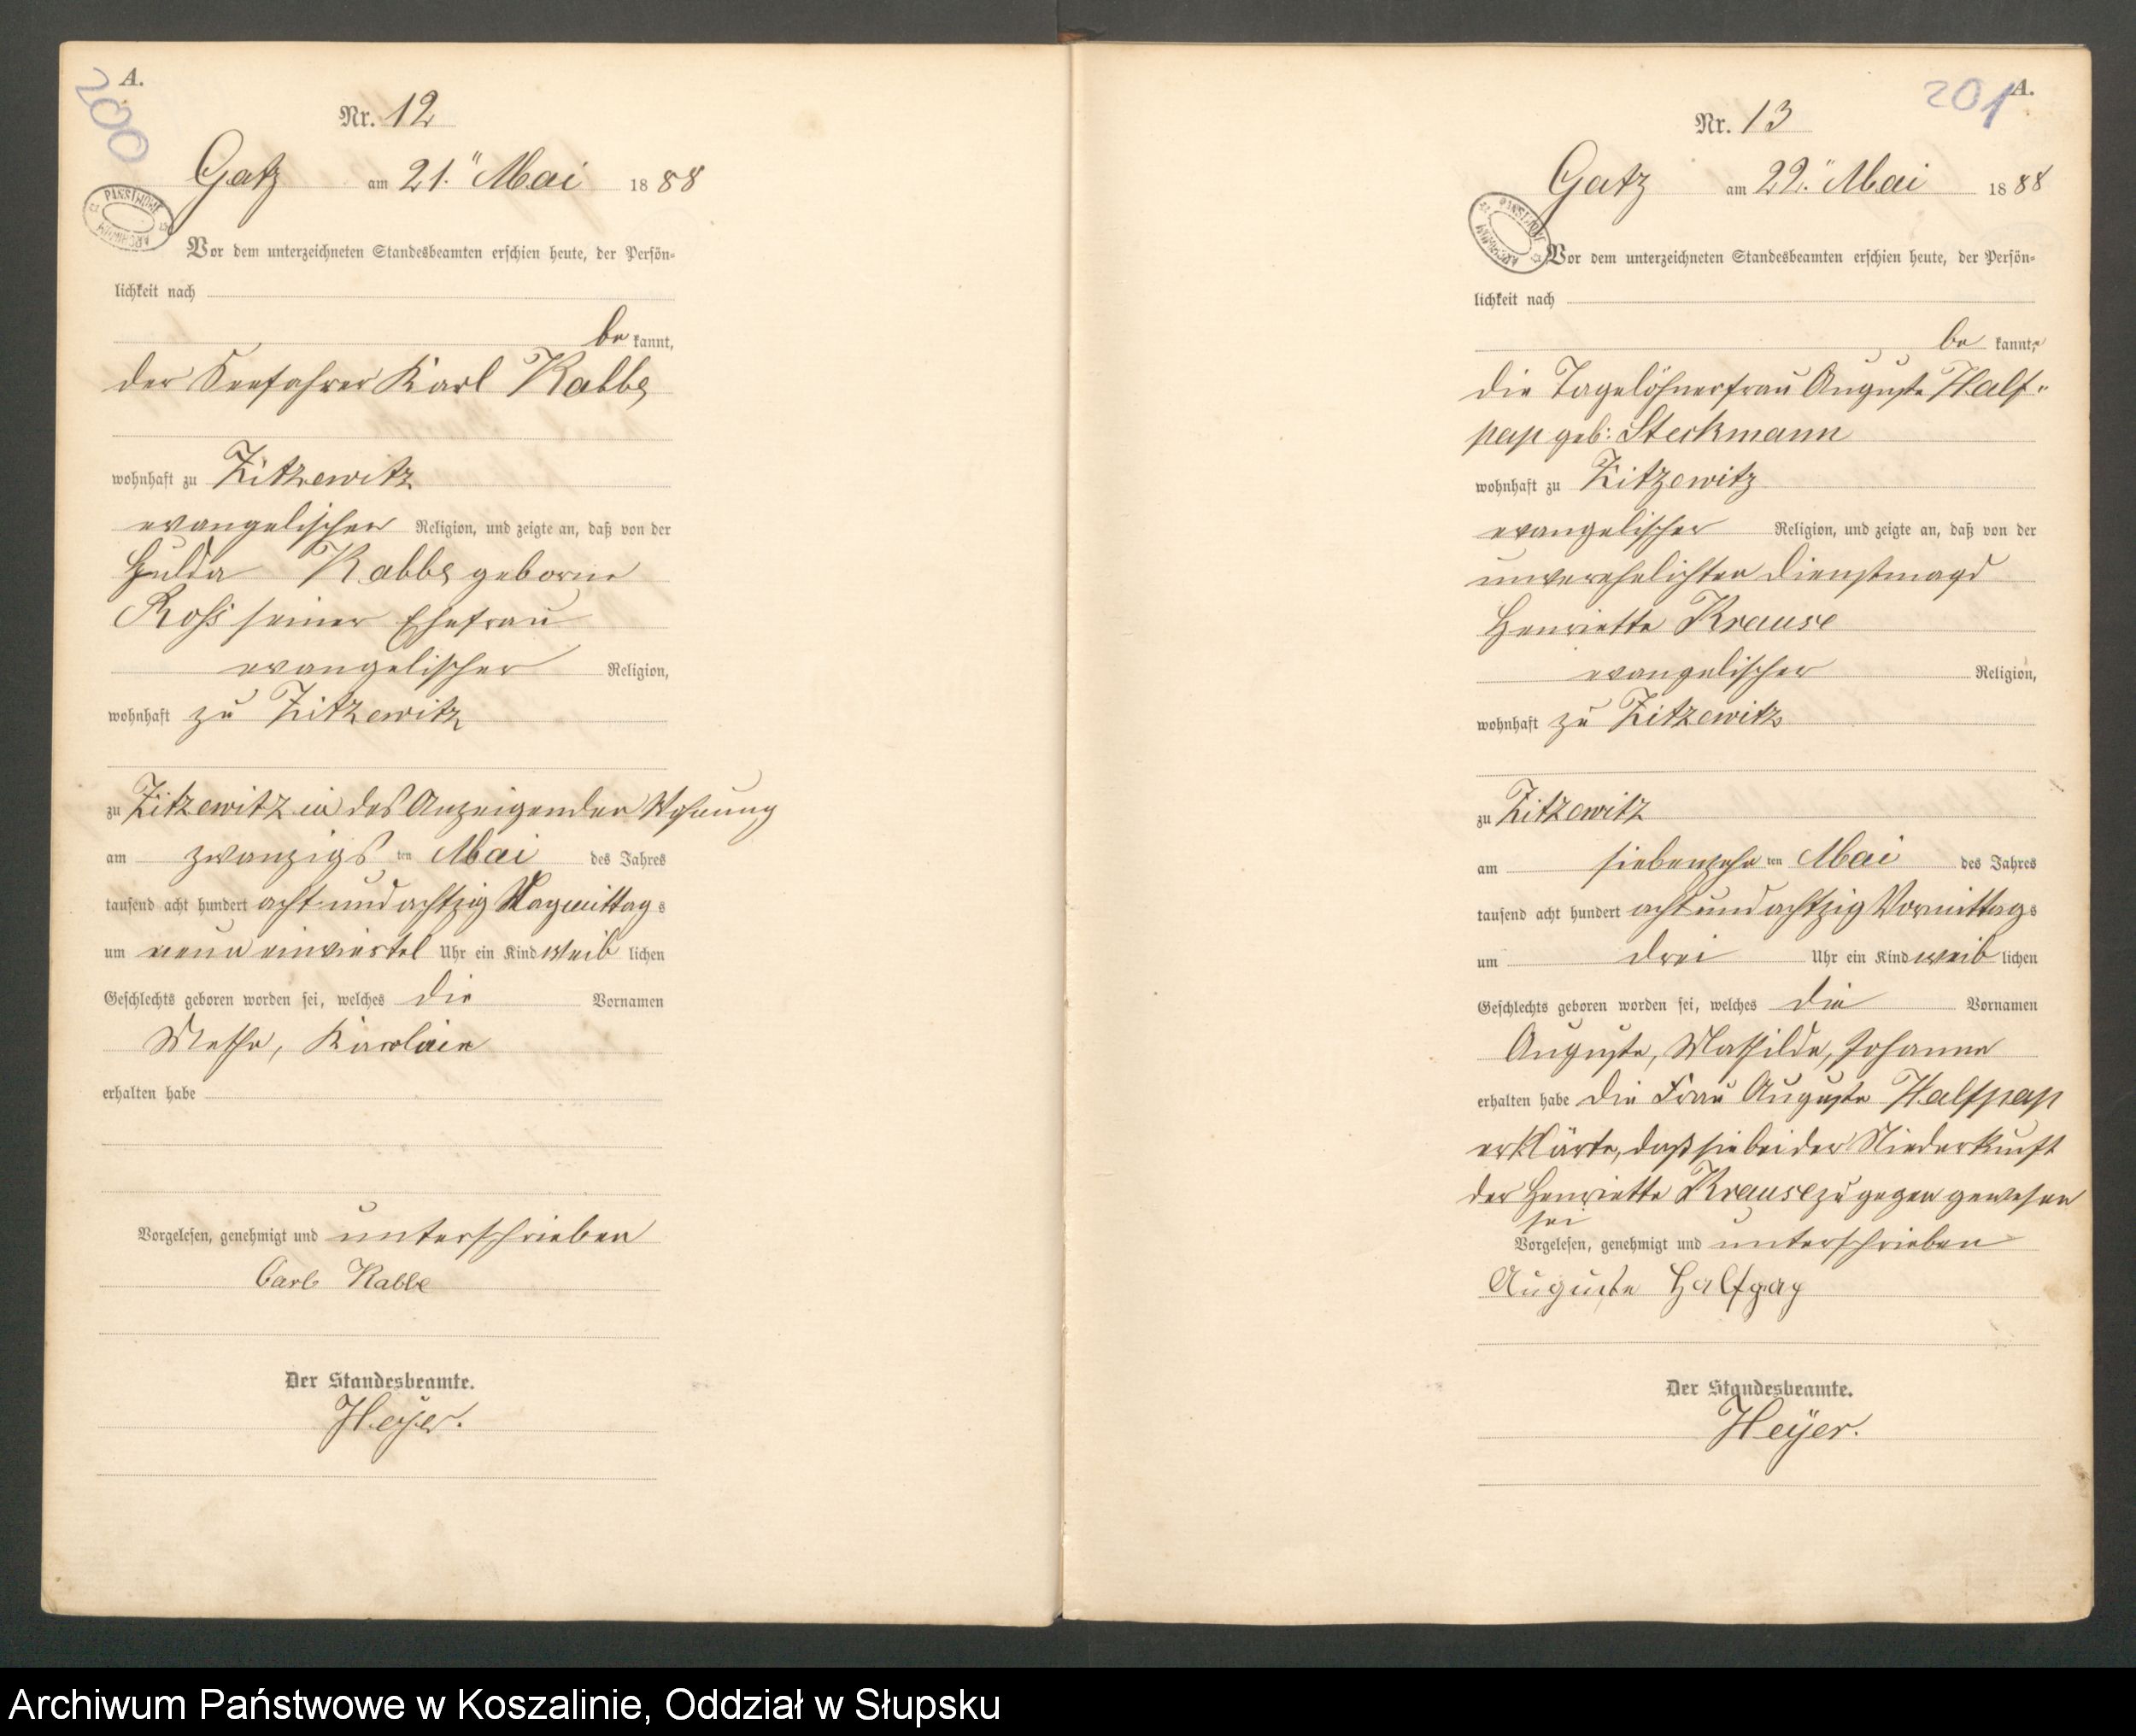 A.
200
Nr. 12
Gatz am 21. Mai 1888
PAŃSTWOWE ARCHIWUM
Vor dem unterzeichneten Standesbeamten erschien heute, der Persön=
lichkeit nach
be kannt,
der Seefahrer Karl Rabbe
wohnhaft zu Zitzewitz
evangelischer Religion, und zeigte an, daß von der
Hulda Rabbe geborne
Roß seiner Ehefrau
evangelischer Religion,
wohnhaft zu Zitzewitz
zu Zitzewitz in des Anzeigenden Wohnung
am zwanzigs ten Mai des Jahres
tausend acht hundert acht und achtzig Nachmittag s
um neun einviertel Uhr ein Kind weib lichen
Geschlechts geboren worden sei, welches die Vornamen
Karoline
erhalten habe
Vorgelesen, genehmigt und unterschrieben
Carl Rabbe
Der Standesbeamte.
Heyer.
A.
201
Nr. 13
Gatz am 22. Mai 1888
PAŃSTWOWE ARCHIWUM
Vor dem unterzeichneten Standesbeamten erschien heute, der Persön=
lichkeit nach
be kannt,
die Tagelöhnerfrau Auguste Half=
pap geb: Steckmann
wohnhaft zu Zitzewitz
evangelischer Religion, und zeigte an, daß von der
unverehelichten Dienstmagd
Henriette Krause
evangelischer Religion,
wohnhaft zu Zitzewitz
zu Zitzewitz
am siebenzehn ten Mai des Jahres
tausend acht hundert acht und achtzig Vormittags
um drei Uhr ein Kind weib lichen
Geschlechts geboren worden sei, welches die Vornamen
Auguste, Mathilde, Johanne
erhalten habe die Frau Auguste Halfpap
erklärte, daß sie bei der Niederkunft
der Henriette Krause zugegen gewesen
sei
Vorgelesen, genehmigt und unterschrieben
Auguste Halfpap
Der Standesbeamte.
Heÿer.
Archiwum Państwowe w Koszalinie, Oddział w Słupsku